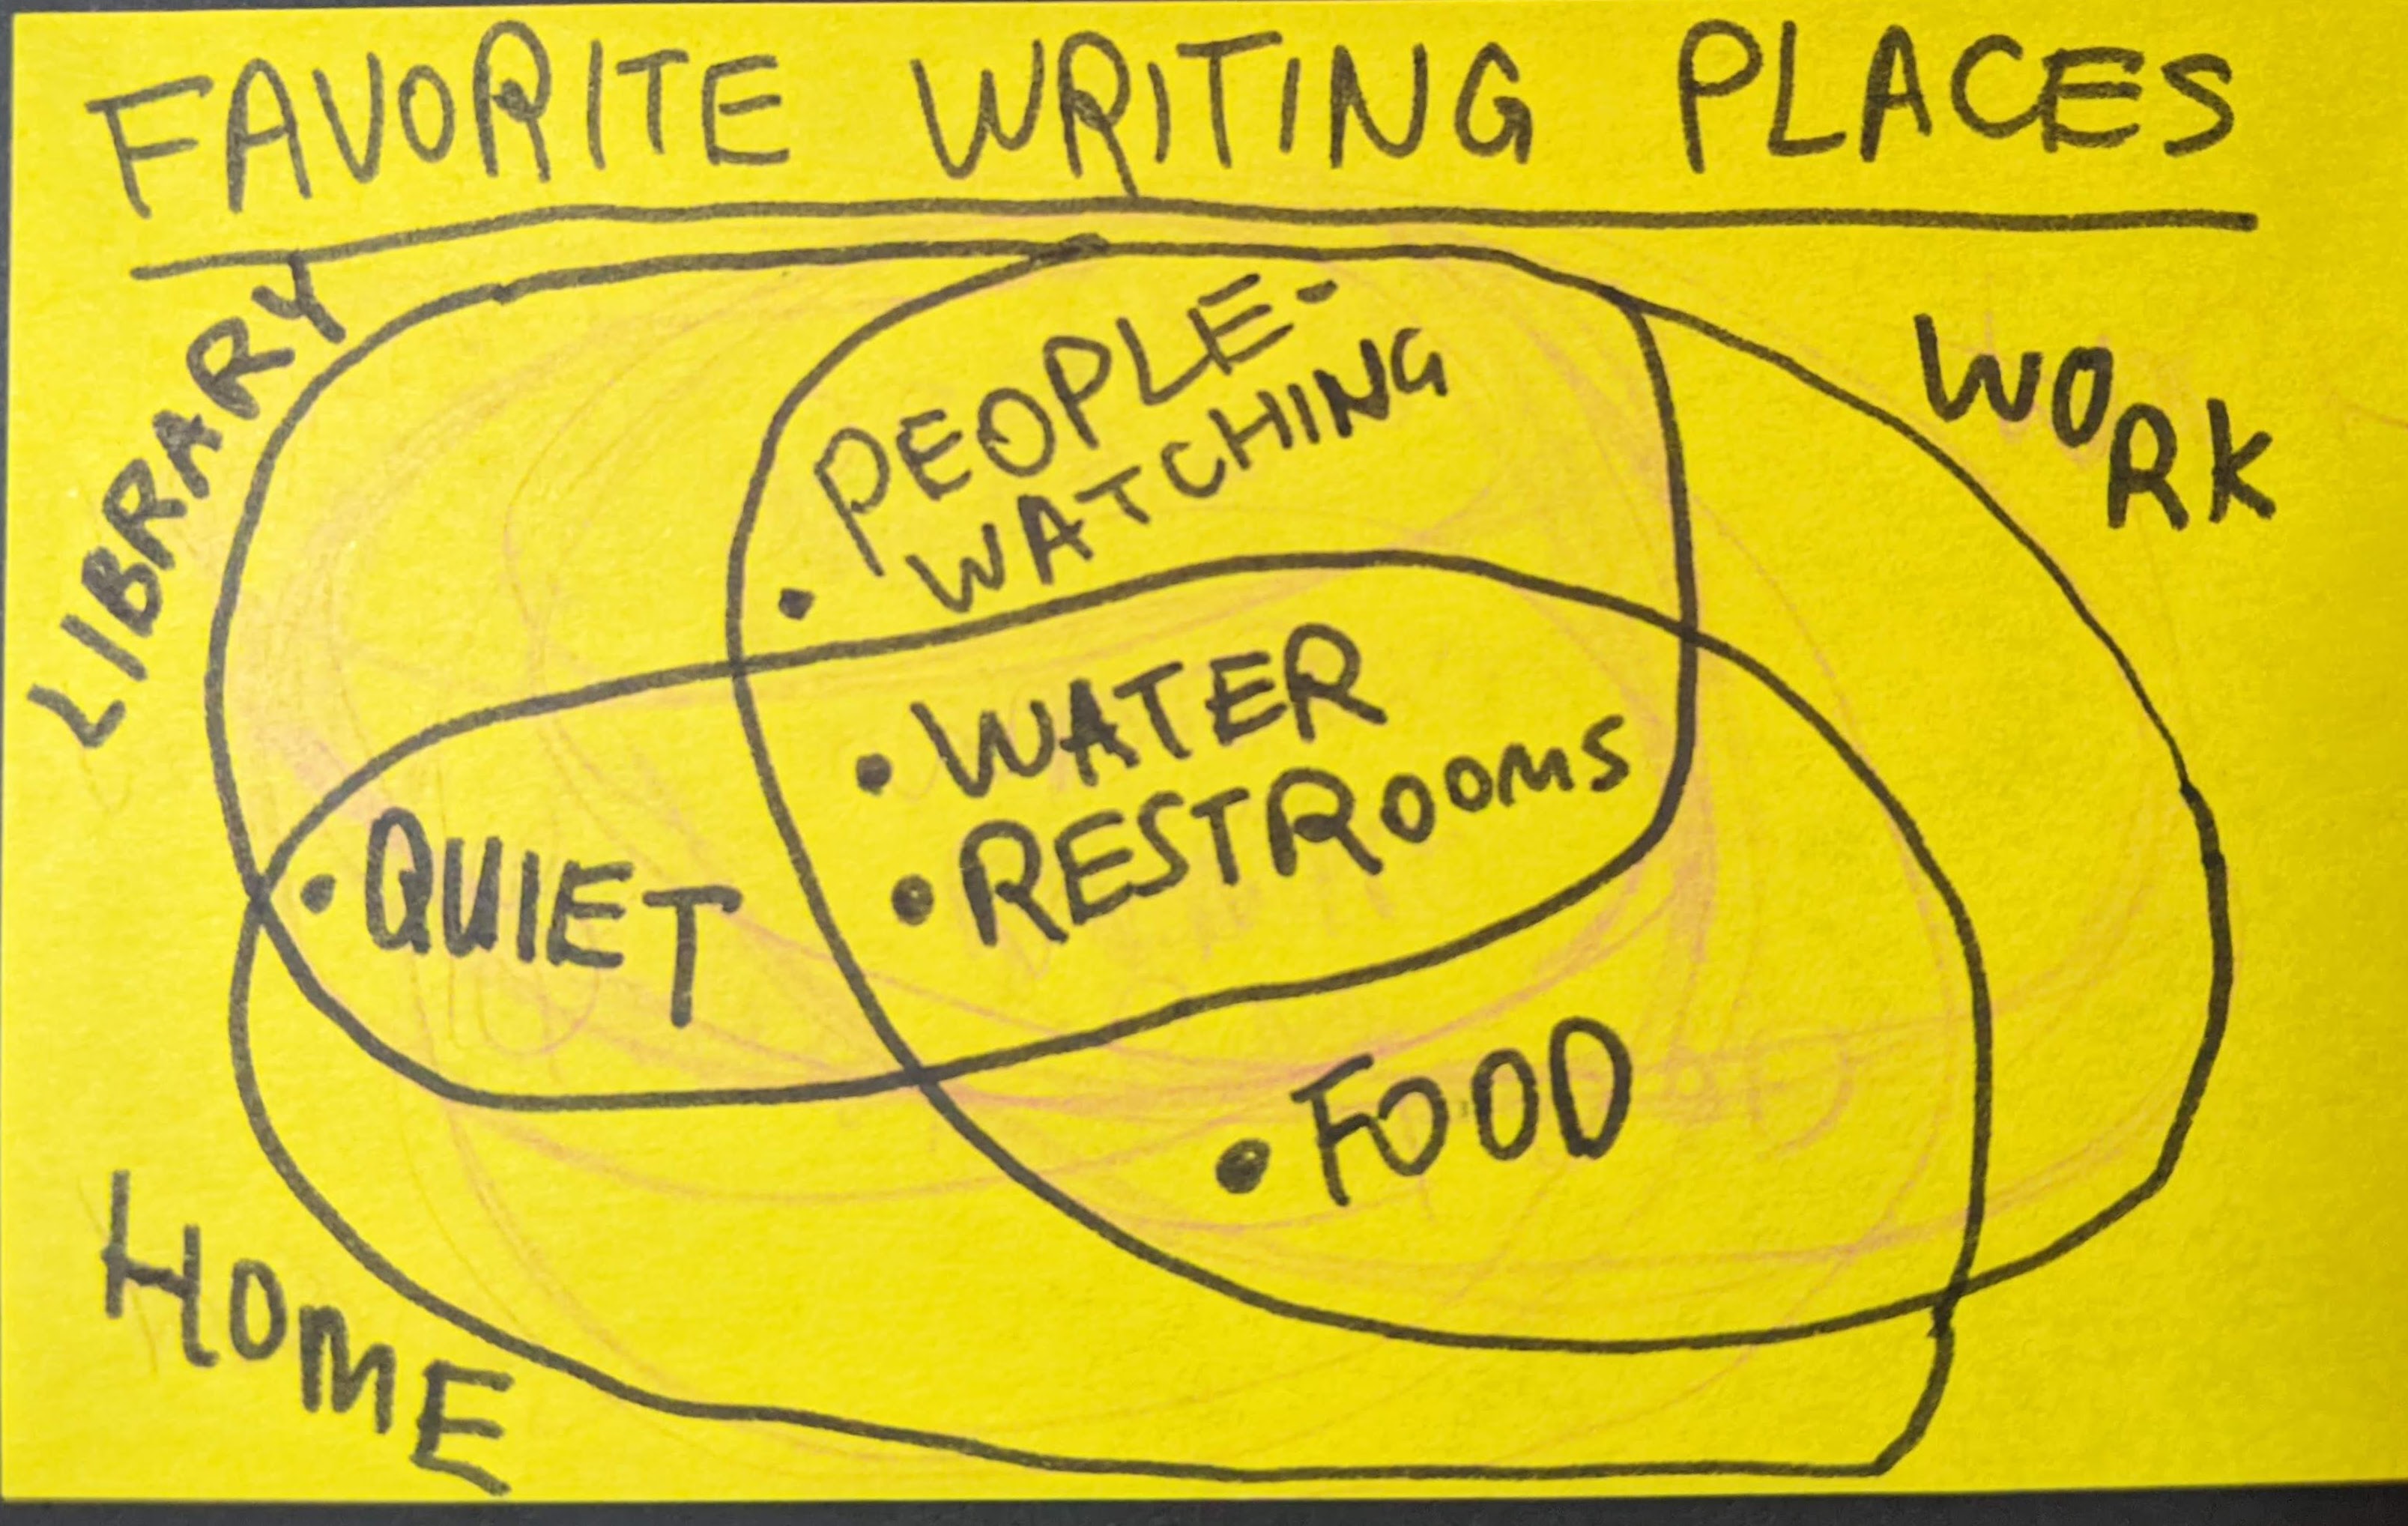 FAVORITE WRITING PLACES
LIBRARY
WORK
• PEOPLE-
WATCHING
• WATER
• RESTROOMS
• QUIET
• FOOD
HOME